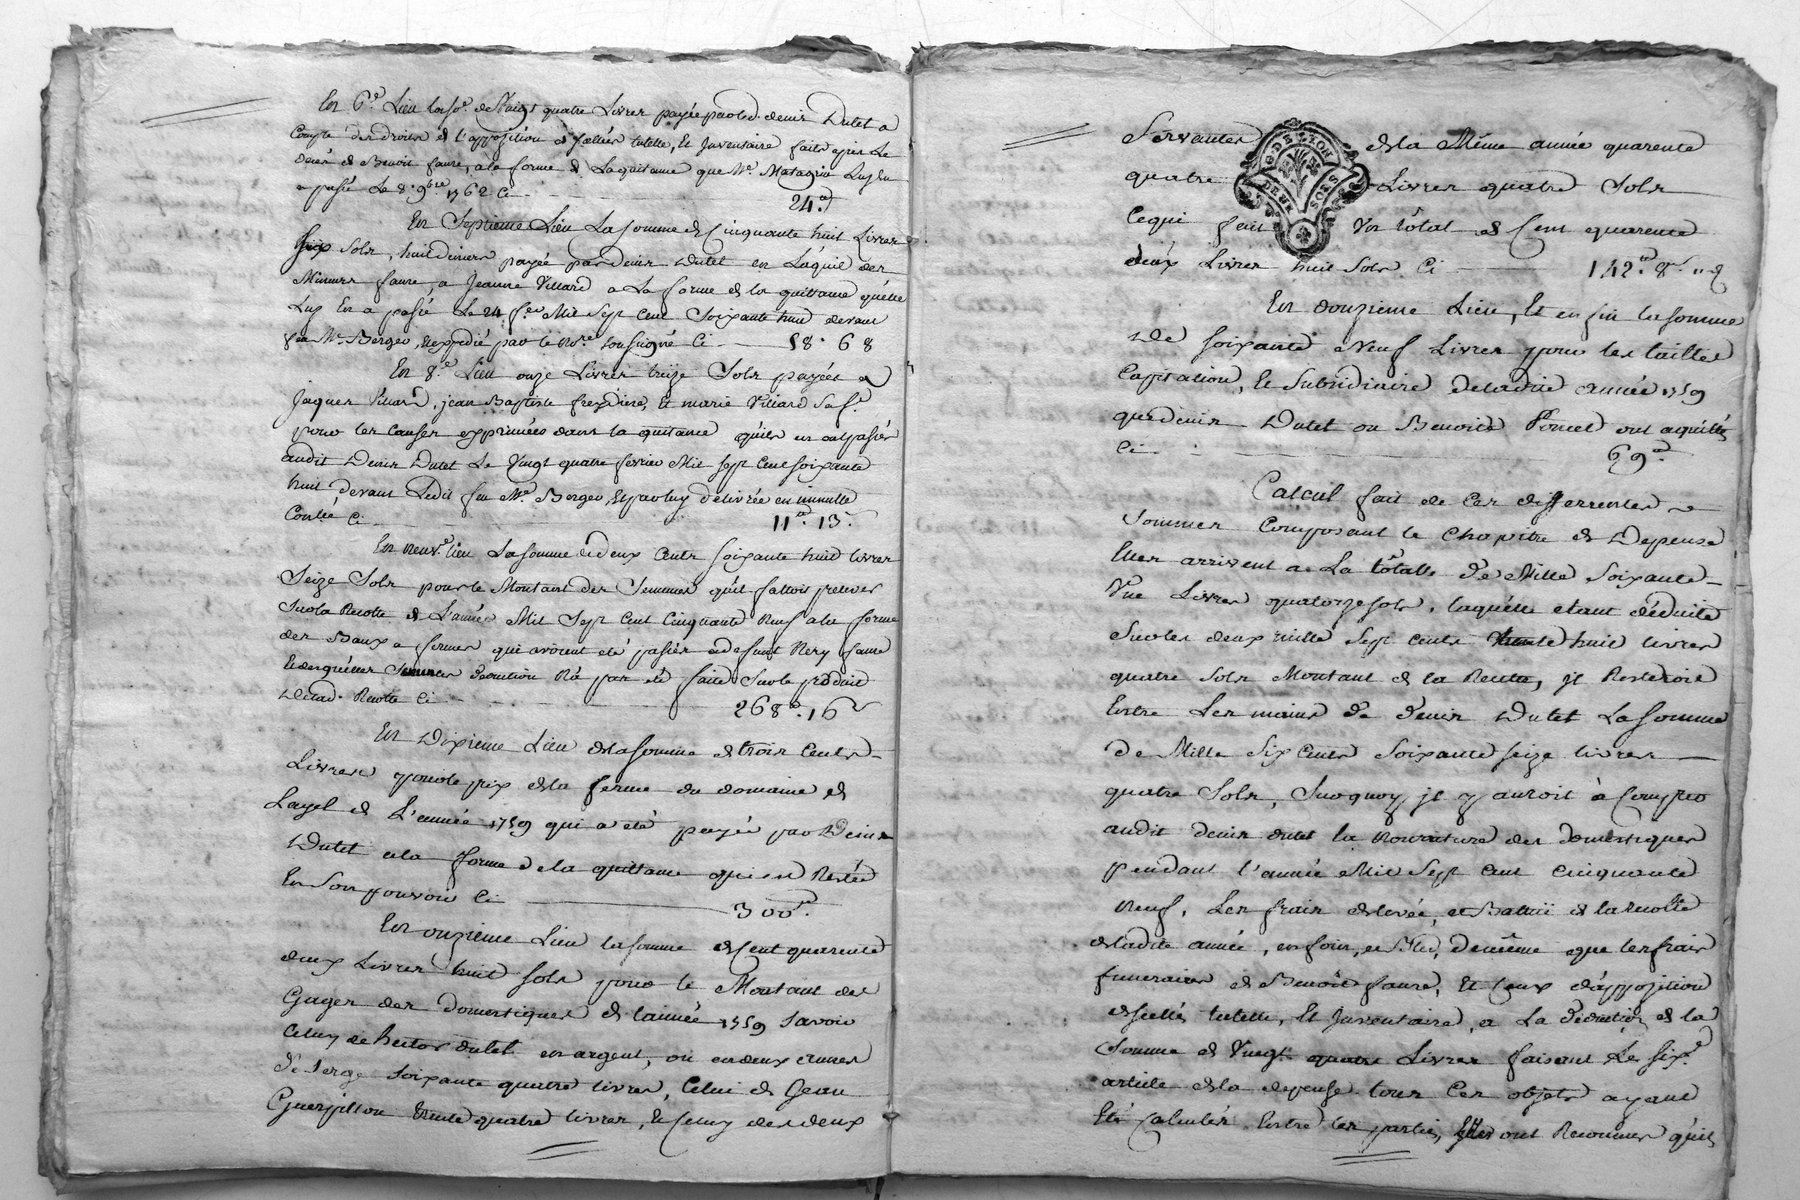 En 6e Lieu la so.e de Vingt quatre Livres payée par led. denis Dutet a
Compte des droits d l'apposition d scellés tutelle, Et Inventaire faits après Le
décès de Benoit faure, a la forme d La quitance que Me
a passé Le 8. 9bre 1762 Ci 24.
En Septieme Lieu La somme d Cinquante huit Livres
six Sols, huit deniers payée par denis Dutet en L'aquit des
Mineurs faure, a Jeanne Villard a La forme d la quittance quelle
Luy En a passé Le 24 fer Mil Sept Cent Soixante huit devant
feu Me Berger, expedié par le No.re soussigné Ci 58. 6 8
En 8e Lieu onze Livres treize Sols payées a
Jaques Villard, jean Baptiste, Et marie Villard Sa f.e
pour les Causes exprimées dans la quitance quils en ont passée
audit Denis Dutet Le Vingt quatre fevrier Mil Sept Cent soixante
huit, devant Ledit feu Me Berger, Et par luy delivrée en minutte
Contée Ci 11. 13.
En neuv.e lieu La somme de deux Cents soixante huit livres
Seize Sols pour le Montant des Semences qu'il falloit prelever
Sur la Recolte d L'année Mil Sept Cent Cinquante Neuf a la forme
des Baux a fermes qui avoient été passés a defunt Remy faure
Et desquelles Semences deduction Na pas été faite Sur le produit
De lad. Recolte Ci 268. 16
En Dixieme Lieu de la somme d trois Cents
Livres pour le prix de la ferme du domaine d
Layel d L'année 1759 qui a été payée par Denis
Dutet a la forme de la quittance qui est Restée
En Son pouvoir Ci 300.
En onzieme Lieu la somme d Cent quarente
deux Livres huit sols pour le Montant des
Gages des domestiques d l'année 1759 Savoir
Celuy de hector dutet en argent, ou en deux
de serge soixante quatre livres, Celui d Jean
Guerpillon trente quatre livres, & Celuy des deux
Servantes de la Même année quarente
quatre Livres quatre Sols
Ce qui fait Un total d Cent quarente
deux Livres huit Sols Ci 142. 8.
G. DE LYON
DEUX SOLS
En douzieme Lieu, Et enfin la somme
De soixante Neuf Livres pour les tailles
Capitation, Et Subsidiaire de ladite année 1759
que denis Dutet ou Benoite Poncet ont aquittés
Ci 69.
Calcul fait de Ces differentes
Sommes Composant le Chapitre d Depense
Elles arrivent a La totalle de Mille Soixante
Une Livres quatorze sols, laquelle etant déduite
Sur les deux mille Sept Cents trente huit livres
quatre Sols Montant d la Recette, jl Resteroit
Entre Les mains de denis Dutet La somme
de Mille Six Cents Soixante seize livres
quatre Sols, Sur quoy jl y auroit à Compter
audit denis dutet la Nourriture des domestiques
pendant l'année Mil Sept Cent Cinquante
Neuf, Les frais de levée, et Battüe d la recolte
de ladite année, en foin, et Bled, de même que les frais
funeraires d Benoit faure, Et Ceux d'apposition
de scellés tutelle, Et Inventaire, a La deduction d la
Somme d Vingt quatre Livres faisant Le six.e
article de la depense tous Ces objets ayant
Eté Calculés Entre les parties, Elles ont Reconnues qu'il